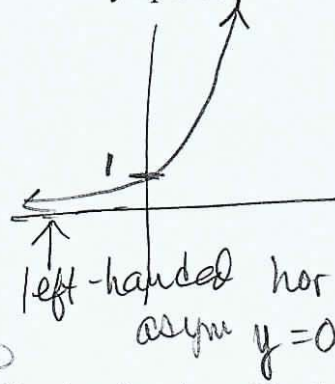 1
left-handed hor
asym y=0